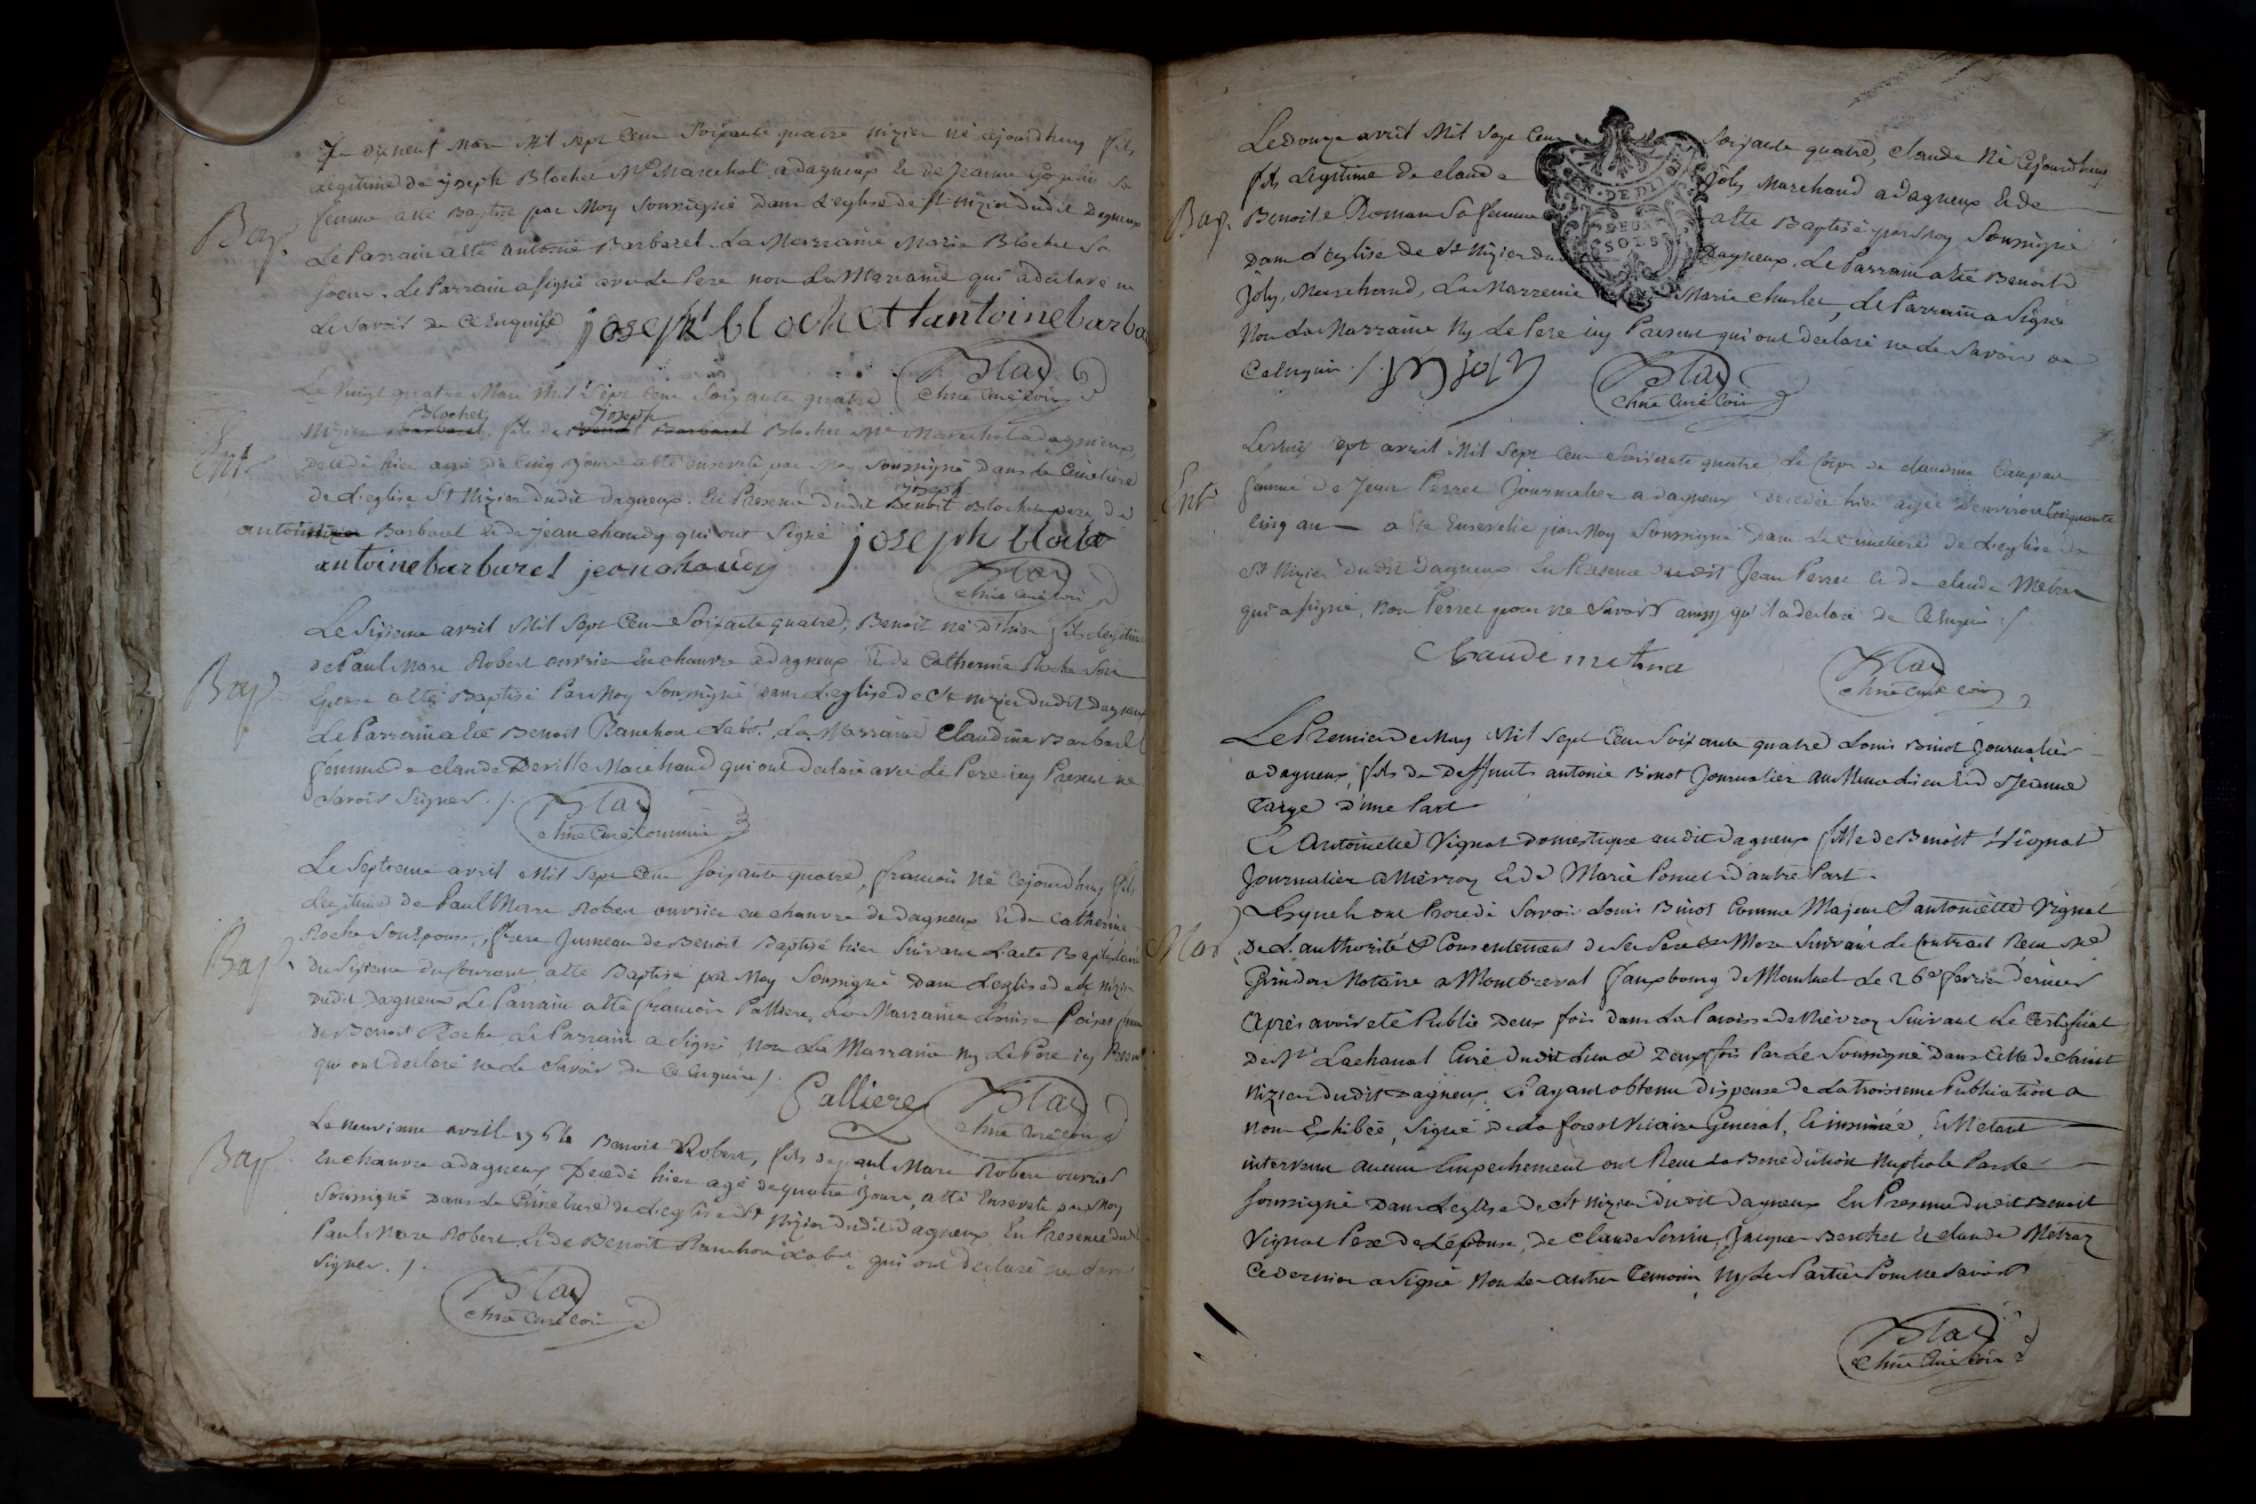 Le dix neuf Mars Mil Sept Cent Soixante quatre nizier né cejourdhuy fils
Legitime de joseph Blochet Me Marechal a dagneux et de Jeanne sa
Bap. femme a été Baptisé par Moy Soussigné Dans L'eglise de St nizier dudit Dagneux
Le Parrain a été antoine Barbaret La Marraine Marie Blochet Sa
soeur. Le Parrain a signé avec Le Pere non La Marraine qui a declaré ne
Le Savoir de Ce Enquise joseph blochet antoine barba
Blay
chne Curé Com
Le Vingt quatre Mars Mil Sept Cent Soixante quatre
Blochet joseph
Ent nizier Barbaret fils de Benoit Barbaret Blochet Me Marechal a dagneux
Decedé hier agé de Cinq Jours a été enseveli par Moy Soussigné Dans Le Cimetiere
joseph
de L'eglise St Nizier dudit dagneux. En Presence dudit Benoit Blochet pere de
antoine Barbaret et de jean chaudy qui ont Signé joseph bloche
antoine barbaret jean chaudy
Blay
chne Curé Com
Le Sixieme avril Mil Sept Cent Soixante quatre, Benoit né D'hier fils Legitime
de Paul Marc Robert ouvrier En chanvre a dagneux Et de Catherine Roche Son
Bap. Epouse a été Baptisé Par Moy Soussigné Dans L'eglise de St nizier dudit Dagneux
Le Parrain a été Benoit Planchon Labr. La Marraine Claudine Barbaret
femme de claude Deville Marchand qui ont declaré avec Le Pere icy Present ne
Savoir Signer ./.
Blay
chne Curé Commis
Le Septieme avril Mil Sept Cent Soixante quatre, francois Né Cejourdhuy fils
Legitime de Paul Marc Robert ouvrier en chanvre de Dagneux Et de Catherine
Roche Son Epouse, frere Jumeau de Benoit Baptisé hier Suivant L'acte Baptistaire
Bap. du Sixieme du Courant, a été Baptisé par Moy Soussigné Dans L'eglise de St nizier
Dudit Dagneux Le Parrain a été francois Palliere, La Marraine Louise
de Benoit Roche Le Parrain a Signé, Non La Marraine Ny Le Pere icy Present
qui ont Declaré ne Le Savoir De Ce Enquis ./.
Palliere Blay
chne Curé Com
Le neuvieme avril 1764 Benoit Robert, fils de paul Marc Robert ouvrier
Bap. En chanvre a dagneux Decedé hier agé de quatre Jours, a été Enseveli par Moy
Soussigné Dans Le Cimetiere de L'eglise St Nizier Dudit Dagneux En Presence dudit
Paul Marc Robert Et de Benoit Planchon Labr. qui ont Declaré ne Savoir
Signer. ./.
Blay
chne Curé Com
Le Douze avril Mil Sept Cent Soixante quatre, claude Né Cejourdhuy
fils Legitime de claude Joly Marchand a dagneux Et de
Bap. Benoite Roman Sa femme a été Baptisé par Moy Soussigné
Dans L'eglise de St Nizier Dudit Dagneux. Le Parrain a été Benoit
Joly, Marchand, La Marraine Marie charlet, Le Parrain a Signé
Non La Marraine Ny Le Pere icy Present qui ont declaré ne Le Savoir de
Ce Enquis ./. joly
Blay
chne Curé Com
GEN. DE DIJON
DEUX
SOLS
Le Vingt Sept avril Mil Sept Cent Soixante quatre, Le Corps de claudine
Ent femme de Jean Perret Journalier a dagneux Decedée hier agée D'environ Cinquante
Cinq ans a été Ensevelie par Moy Soussigné Dans Le Cimetiere de L'eglise De
St Nizier dudit Dagneux En Presence dudit Jean Perret et de claude Metra
qui a signé, non Perret pour ne Savoir ainsy qu'il a declaré de Ce Enquis ./.
Claude metra
Blay
chne Curé Com
Le Premier de May Mil Sept Cent Soixante quatre Louis Binot Journalier
a dagneux, fils de Deffunts antoine Binot Journalier au Meme Lieu Et de Jeanne
Targe D'une Part
Et Antoinette Vignat Domestique audit Dagneux fille de Benoit Vignat
Journalier a Nievroz Et de Marie Poncet d'autre Part.
Mar Lesquels ont Procedé Savoir Louis Binot Comme Majeur Et antoinette Vignat
De L'authorité & Consentement de Ses Pere et Mere Suivant Le Contrat Recu Me
Grindon Notaire a Montbreval fauxbourg de Montluel Le 26e fevrier dernier
Après avoir eté Publié Deux fois dans La Paroisse de Nievroz Suivant Le Certificat
De Sr Lachanal Curé dudit Lieu & Deux fois Par Le Soussigné Dans Celle de Saint
Nizier dudit Dagneux, Et ayant obtenu dispense de La troisieme Publication a
nous Exhibée, Signée de La forest Vicaire General, Et insinuée, Et N'etant
intervenu aucun Empechement ont Recu La Benediction Nuptiale Par Le
Soussigné Dans L'eglise de St Nizier dudit Dagneux En Presence dudit Benoit
Vignat Pere de L'épouse, de Claude Servin, Jacques Berthet et claude Metraz
Ce dernier a Signé Non Les autres Temoins, Ny Les Parties Pour ne Savoir
Blay
chne Curé Com